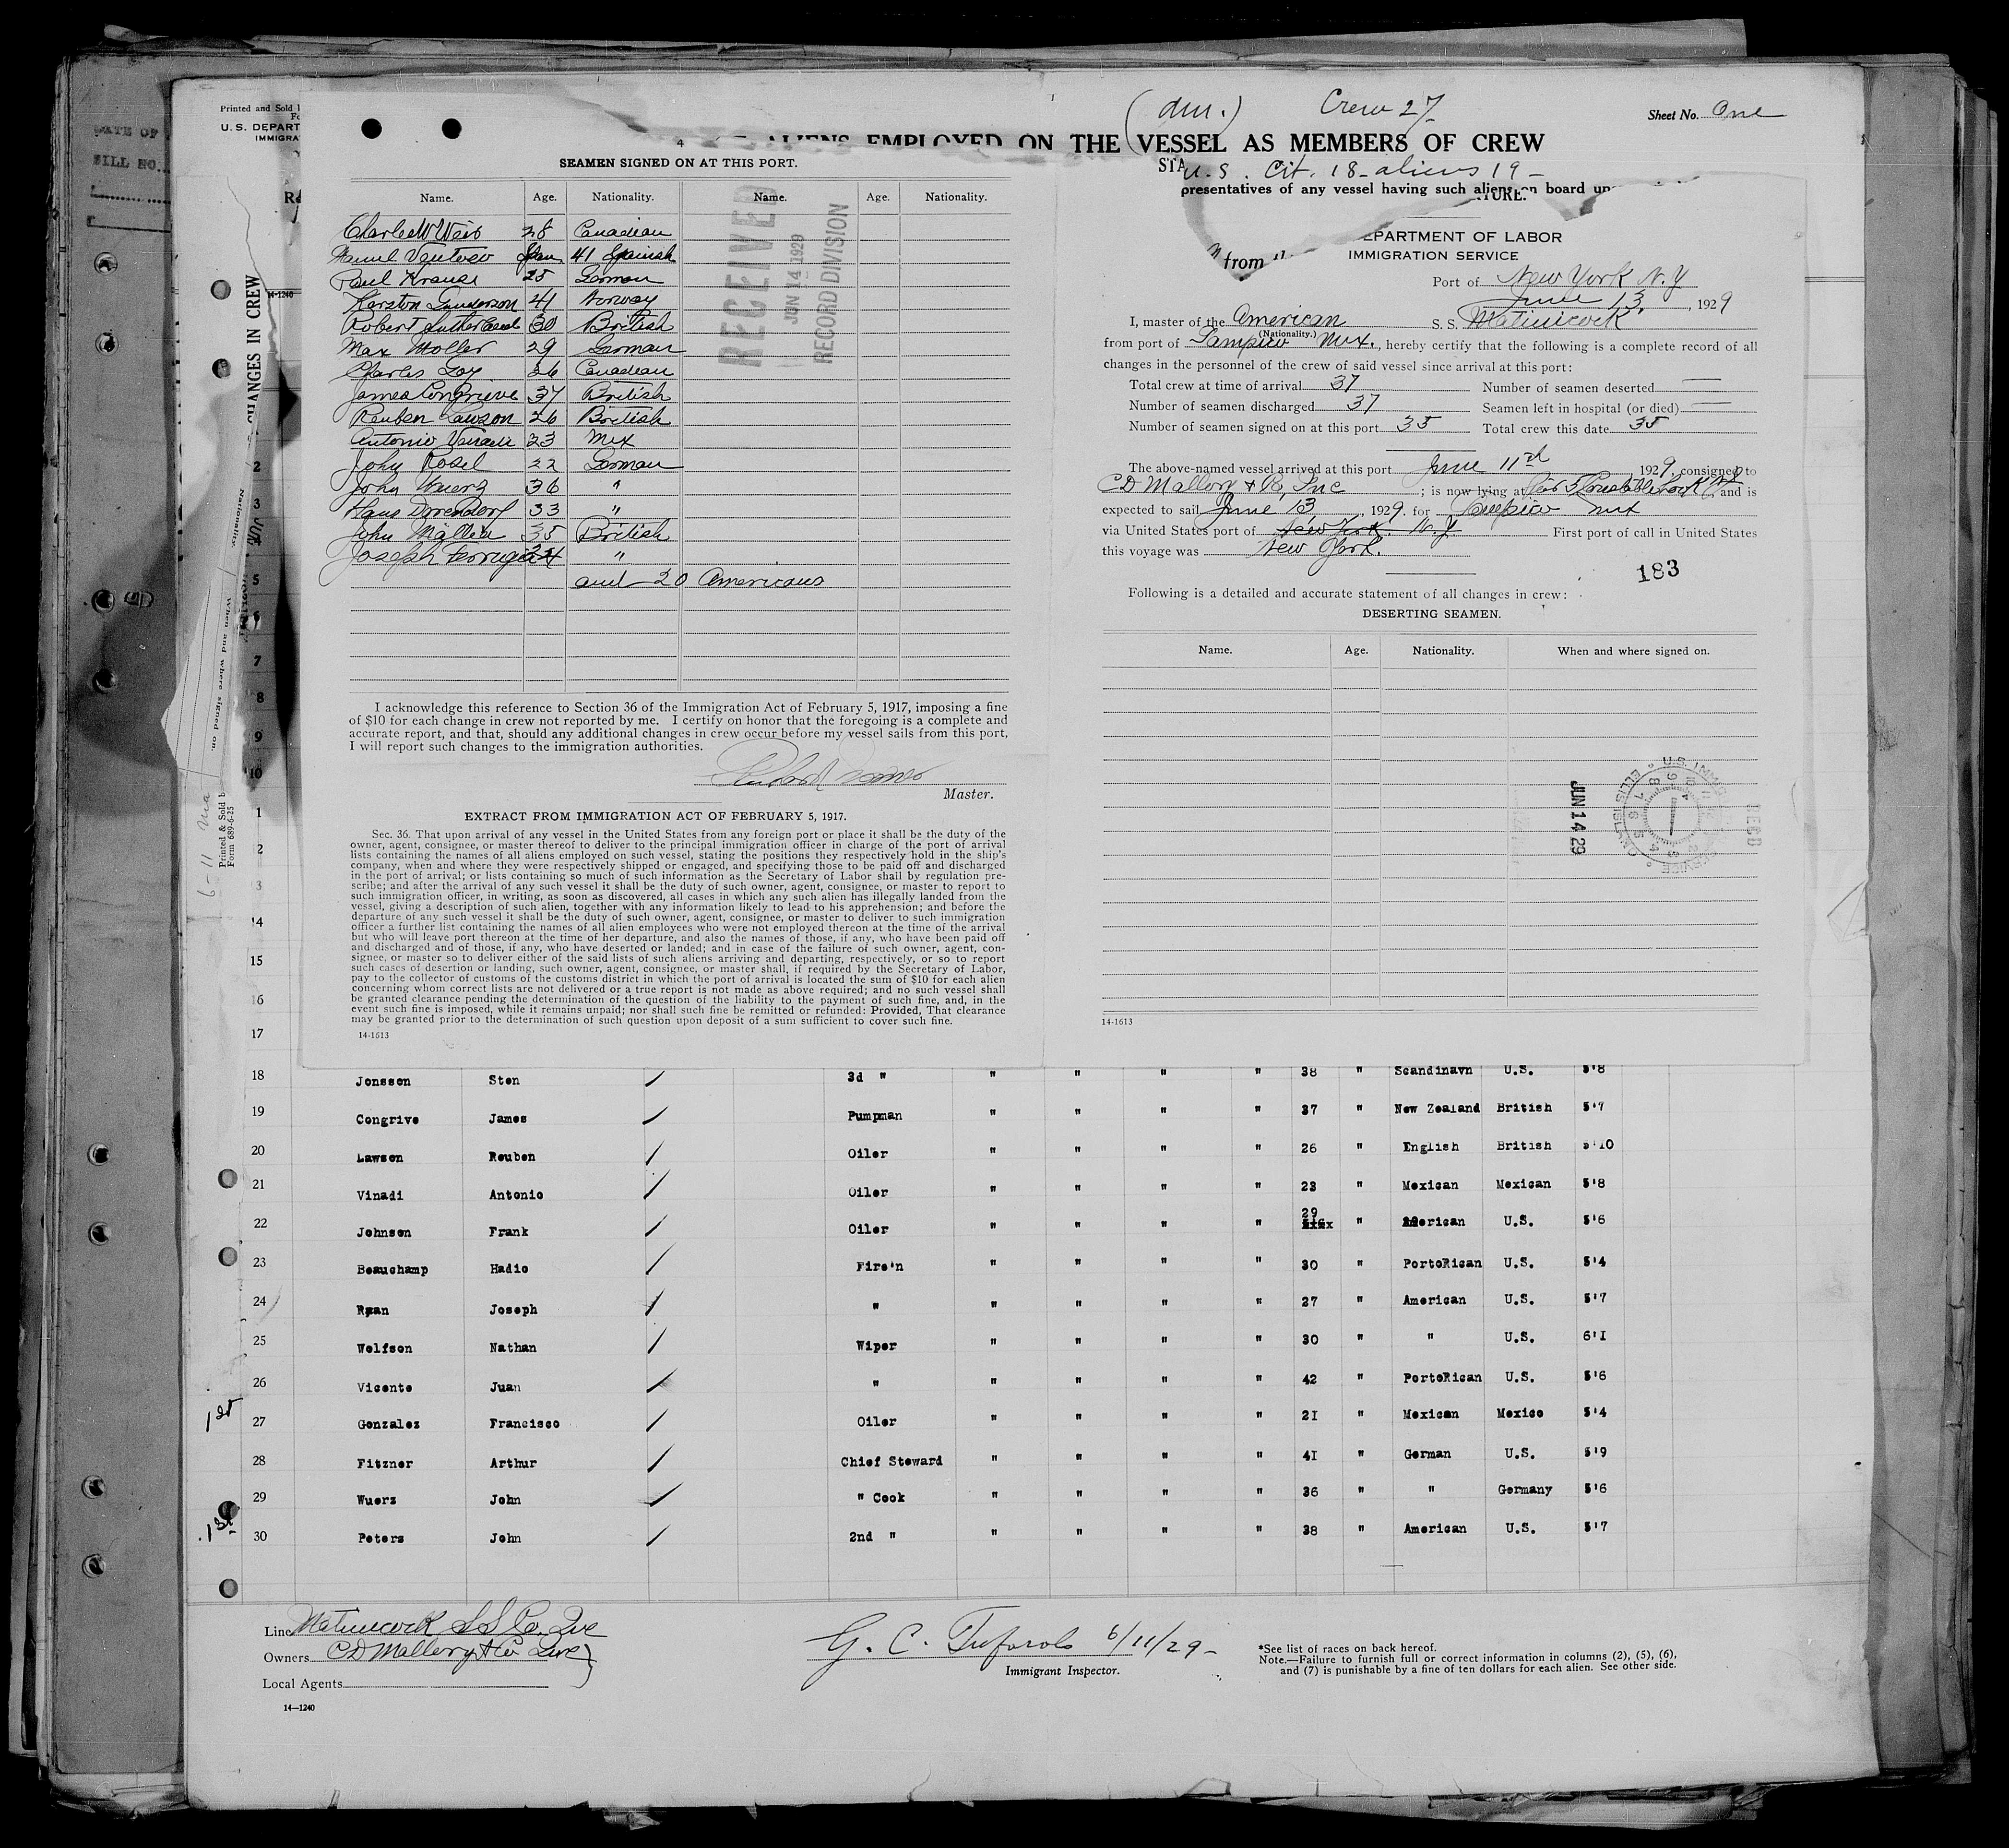 Printed and Sold
U. S. DEPART
IMMIGRA
(dm.) Crew 27
Sheet No. One
ALIENS EMPLOYED ON THE VESSEL AS MEMBERS OF CREW
STA
U.S. Cit. 18 - aliens 19 -
presentatives of any vessel having such aliens on board
from
CHANGES IN CREW
14-1240
Nationality.
When and where signed on.
Printed & Sold b
Form 689-6-25
4
SEAMEN SIGNED ON AT THIS PORT.
Name. Age. Nationality. Name. Age. Nationality.
Charles W Weis 28 Canadian
Manuel Ventoso 41 Spanish
Paul Krause 25 German
Karston Gunderson 41 Norway
Robert Sutherland 30 British
Max Moller 29 German
Charles Loy 26 Canadian
James Congrieve 37 British
Reuben Lawson 26 British
Antonio 23 Mex
John Rosel 22 German
John Wuerz 36 "
Hans Dorendorf 33 "
John 35 British
Joseph "
and 20 Americans
RECEIVED
JUN 14 1929
RECORD DIVISION
I acknowledge this reference to Section 36 of the Immigration Act of February 5, 1917, imposing a fine
of $10 for each change in crew not reported by me. I certify on honor that the foregoing is a complete and
accurate report, and that, should any additional changes in crew occur before my vessel sails from this port,
I will report such changes to the immigration authorities.
Master.
EXTRACT FROM IMMIGRATION ACT OF FEBRUARY 5, 1917.
Sec. 36. That upon arrival of any vessel in the United States from any foreign port or place it shall be the duty of the
owner, agent, consignee, or master thereof to deliver to the principal immigration officer in charge of the port of arrival
lists containing the names of all aliens employed on such vessel, stating the positions they respectively hold in the ship's
company, when and where they were respectively shipped or engaged, and specifying those to be paid off and discharged
in the port of arrival; or lists containing so much of such information as the Secretary of Labor shall by regulation pre-
scribe; and after the arrival of any such vessel it shall be the duty of such owner, agent, consignee, or master to report to
such immigration officer, in writing, as soon as discovered, all cases in which any such alien has illegally landed from the
vessel, giving a description of such alien, together with any information likely to lead to his apprehension; and before the
departure of any such vessel it shall be the duty of such owner, agent, consignee, or master to deliver to such immigration
officer a further list containing the names of all alien employees who were not employed thereon at the time of the arrival
but who will leave port thereon at the time of her departure, and also the names of those, if any, who have been paid off
and discharged and of those, if any, who have deserted or landed; and in case of the failure of such owner, agent, con-
signee, or master so to deliver either of the said lists of such aliens arriving and departing, respectively, or so to report
such cases of desertion or landing, such owner, agent, consignee, or master shall, if required by the Secretary of Labor,
pay to the collector of customs of the customs district in which the port of arrival is located the sum of $10 for each alien
concerning whom correct lists are not delivered or a true report is not made as above required; and no such vessel shall
be granted clearance pending the determination of the question of the liability to the payment of such fine, and, in the
event such fine is imposed, while it remains unpaid; nor shall such fine be remitted or refunded: Provided, That clearance
may be granted prior to the determination of such question upon deposit of a sum sufficient to cover such fine.
14-1613
EPARTMENT OF LABOR
IMMIGRATION SERVICE
Port of New York N.Y
June 13, 1929
I, master of the American S. S. Matinicock
(Nationality.)
from port of Tampico Mex., hereby certify that the following is a complete record of all
changes in the personnel of the crew of said vessel since arrival at this port:
Total crew at time of arrival 37 Number of seamen deserted —
Number of seamen discharged 37 Seamen left in hospital (or died) —
Number of seamen signed on at this port 35 Total crew this date 35
The above-named vessel arrived at this port June 11 1929, consigned to
CD Mallory & Co, Inc ; is now lying at and is
expected to sail June 13, 1929. for Tampico Mex
via United States port of New York N.Y First port of call in United States
this voyage was New York.
183
Following is a detailed and accurate statement of all changes in crew:
DESERTING SEAMEN.
Name. Age. Nationality. When and where signed on.
JUN 14 29
14-1613
18 Jonsson Sten 3d " " " " " 38 " Scandinavn U.S. 5'8
19 Congrive James Pumpman " " " " 37 " New Zealand British 5'7
20 Lawson Reuben Oiler " " " " 26 " English British 5'10
21 Vinadi Antonio Oiler " " " " 23 " Mexican Mexican 5'8
22 Johnson Frank Oiler " " " " 29 " American U.S. 5'6
23 Beauchamp Hadio Fire'n " " " " 30 " PortoRican U.S. 5'4
24 Ryan Joseph " " " " " 27 " American U.S. 5'7
25 Wolfson Nathan Wiper " " " " 30 " " U.S. 6'1
26 Vicente Juan " " " " " 42 " PortoRican U.S. 5'6
27 Gonzalez Francisco Oiler " " " " 21 " Mexican Mexico 5'4
28 Fitzner Arthur Chief Steward " " " " 41 " German U.S. 5'9
29 Wuerz John " Cook " " " " 36 " " Germany 5'6
30 Peters John 2nd " " " " " 38 " American U.S. 5'7
Line Matinicock S S Co. Inc
Owners CD Mallory & Co Inc
Local Agents
G. C. 6/11/29-
Immigrant Inspector.
*See list of races on back hereof.
Note.—Failure to furnish full or correct information in columns (2), (5), (6),
and (7) is punishable by a fine of ten dollars for each alien. See other side.
14—1240